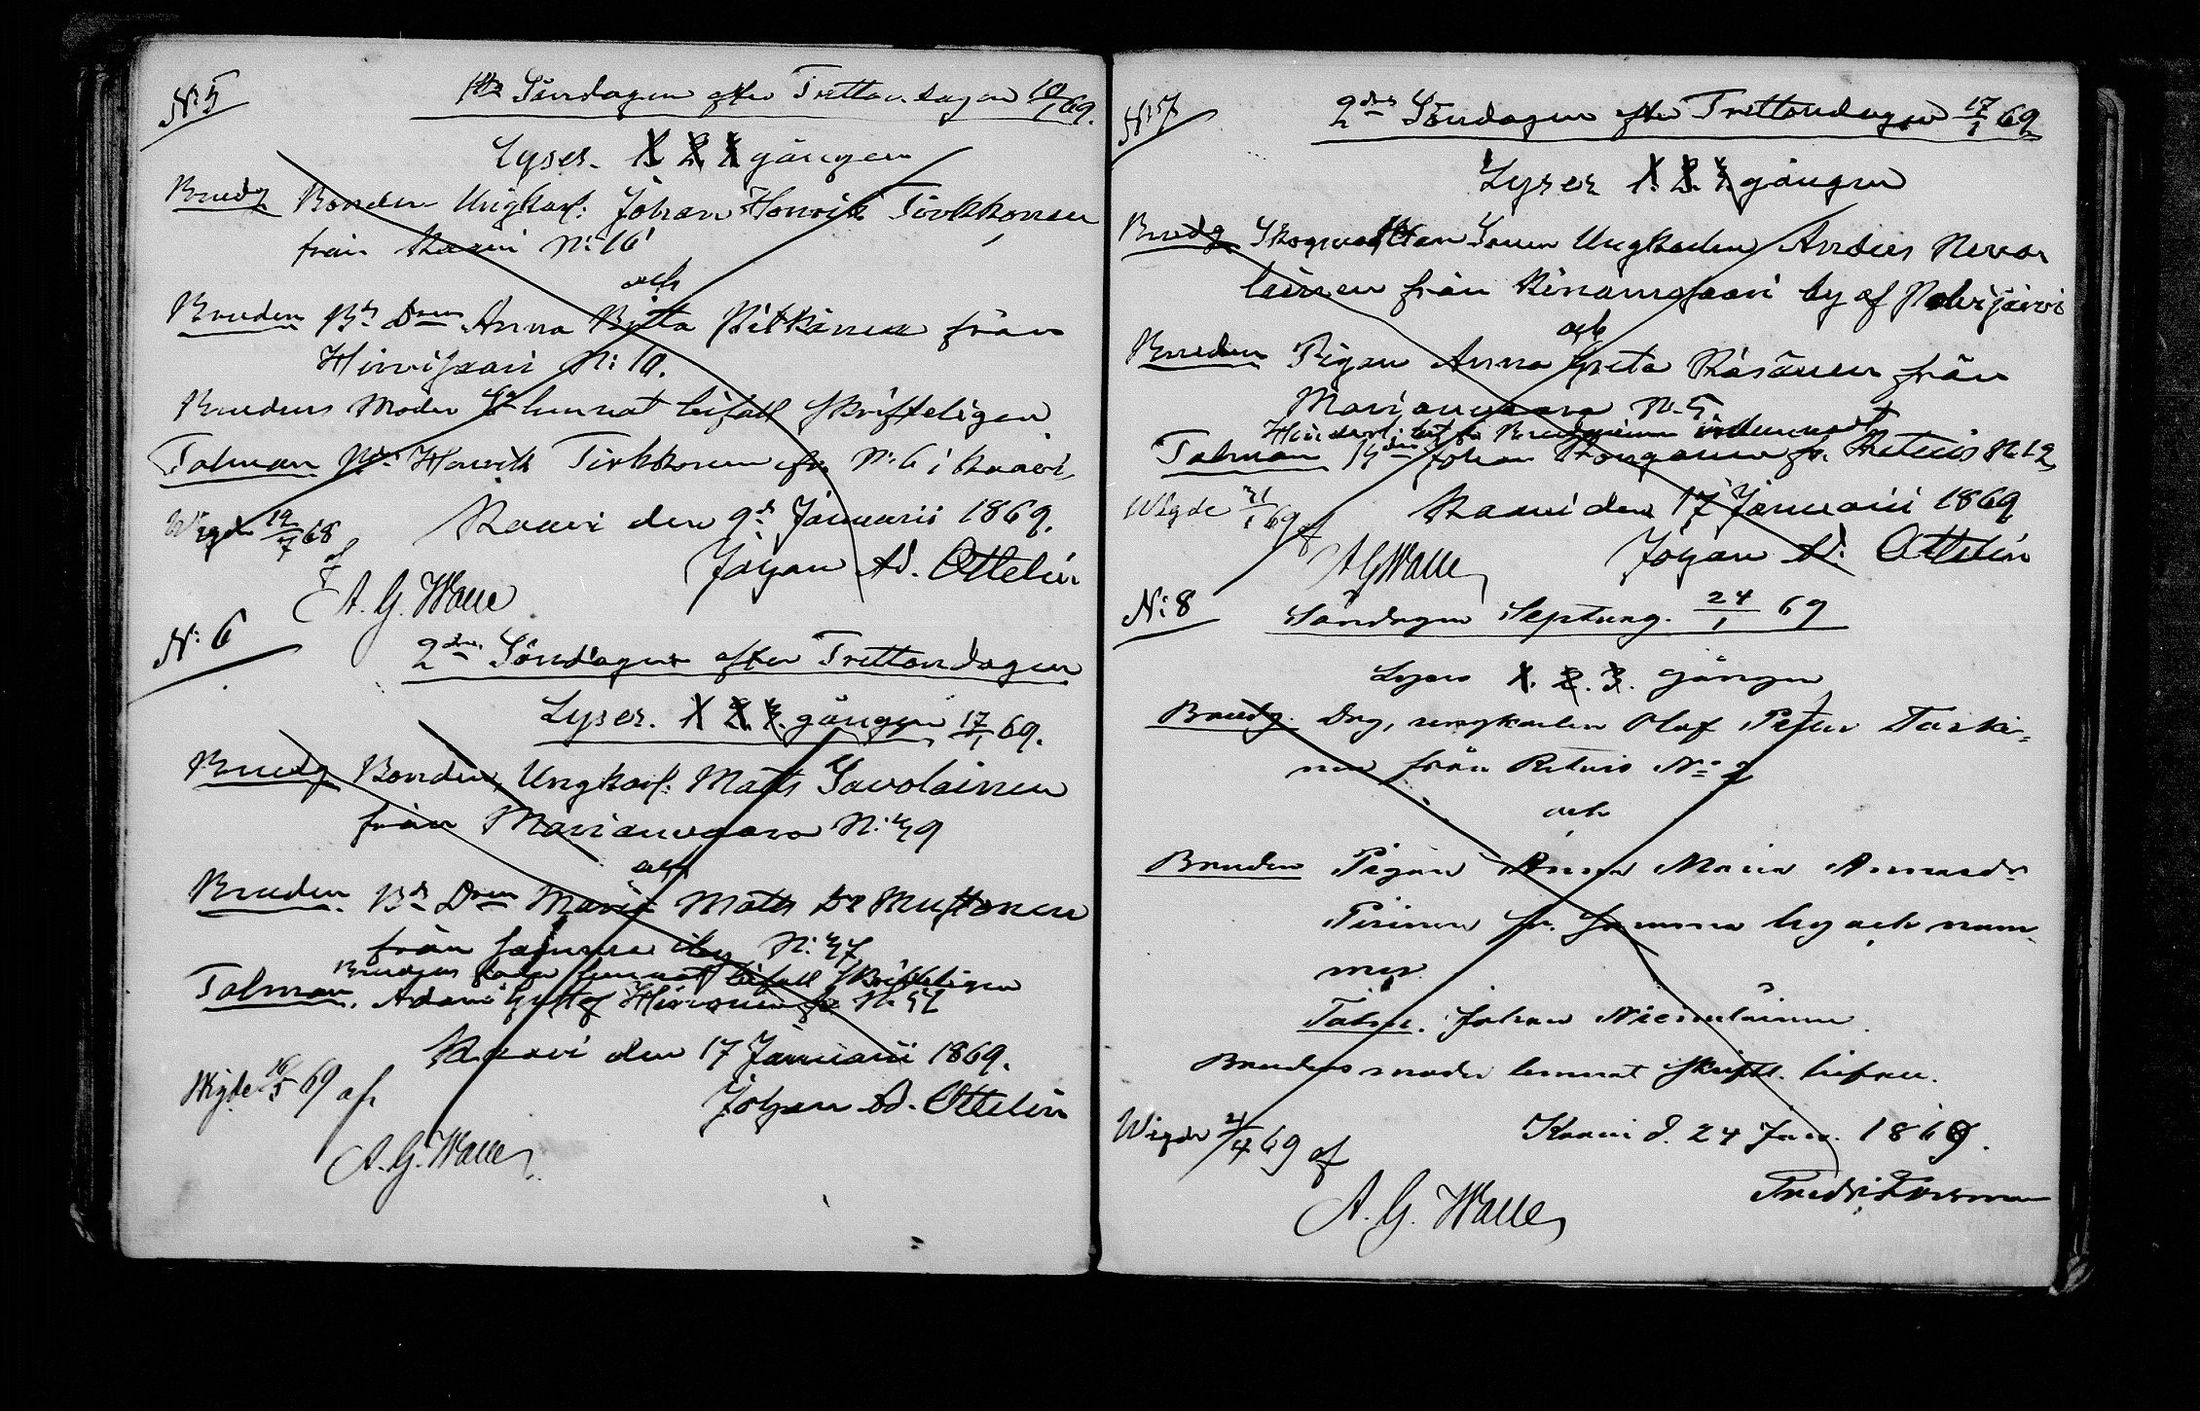 N:5
1sta Söndagen efter Trettondagen 10/1 69.
Lyses. 1 2 3 gången
Brudg Bonden Ungkarl: Johan Henrik Tirkkonen
från Kaavi N:16
och
Bruden Bd Dren Anna Britta Pitkänen från
Hirvisaari N:10.
Brudens Moder lemnat bifall skrifteligen
Talman Henrik Tirkkonen fr N:6 i Kaavi
Wigde 19/7 68 af
Kaavi den 9d Januarii 1869.
Johan Ad. Ottelin
A. G. Walle
N:6
2dra Söndagen efter Trettondagen
Lyses. 1 2 3 gången 17/1 69.
Brudg Bonden, Ungkarl: Matts Savolainen
från Marianvaara N:39
och
Bruden Bd Dren Maria Matts Dr Mustonen
från by N:37
Brudens fader lemnat bifall skrifteligen
Talman. Adam Gustaf Hirvonen fr N:
Kaavi den 17 Januarii 1869.
Wigde 16/5 69 af
Johan Ad. Ottelin
A. G. Walle
N:7
2dra Söndagen efter Trettondagen 17/1 69
Lyses 1. 2. 3 gången
Brudg Skogvaktaren Sonen Ungkarlen Anders Neva
lainen från by af Polvijärvi
och
Bruden Pigan Anna Greta Räsänen från
Marianvaara N:5
för Brudgummen inlemnat
Talman Johan fr. Retuis N:12
Wigde 31/1 69 af
Kaavi den 17 Januarii 1869
Johan Ad. Ottelin
A G Walle
N:8
Söndagen Septuag. 24/1 69
Lyses 1. 2. 3. gången
Brudg. Drg, ungkarlen Olof Petter Taski-
nen från Retuis No 2
och
Bruden Pigan Anna Maria
Pirinen fr. samma by och num-
mer
Talm. Johan Niemeläinen.
Brudens moder lemnat skriftl. bifall.
Wigde 21/4 69 af
Kaavi d. 24 Jan. 1869.
A. G. Walle